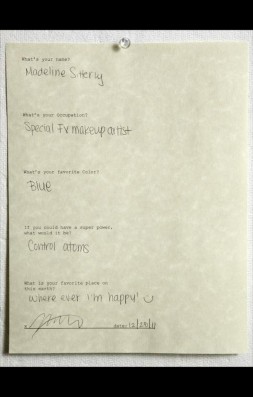 What's your name?
Madeline
What's your occupation?
Special FX makeup artist
What's your favorite Color?
Blue
If you could have a super power,
what would it be?
Control atoms
What is your favorite place on
this earth?
where ever I'm happy!
x
date: